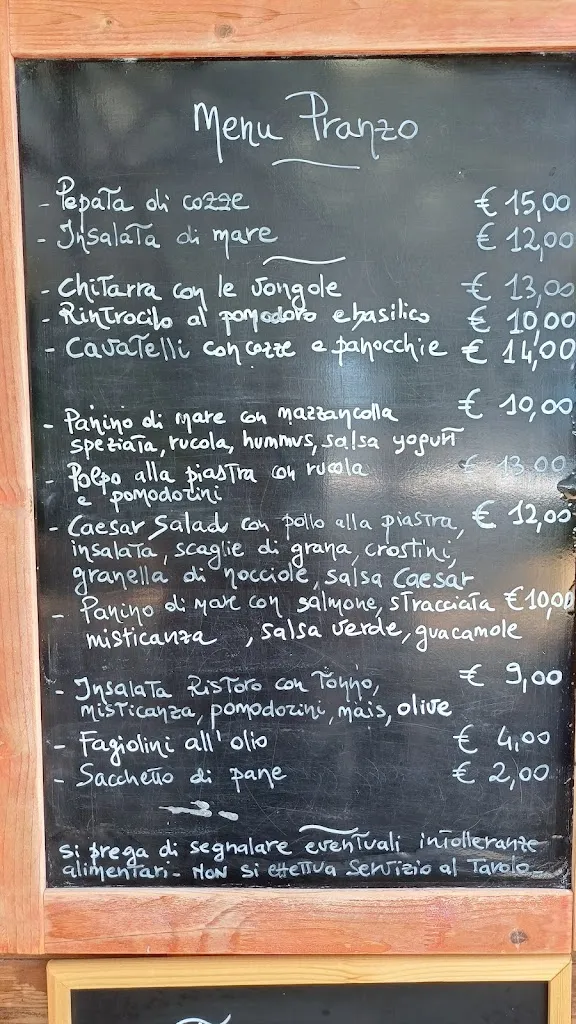 Menu Pranzo
- Pepata di cozze € 15,00
- Insalata di mare € 12,00
- Chitarra con le vongole € 13,00
- Rintrocilo al pomodoro e basilico € 10,00
- Cavatelli con cozze e panocchie € 14,00
- Panino di mare con mazzancolla € 10,00
speziata, rucola, hummus, salsa yogurt
- Polpo alla piastra con rucola € 13,00
e pomodorini
- Caesar Salad con pollo alla piastra, € 12,00
insalata, scaglie di grana, crostini,
granella di nocciole, salsa Caesar
- Panino di mare con salmone, stracciata €10,00
misticanza , salsa verde, guacamole
- Insalata Ristoro con Tonno, € 9,00
misticanza, pomodorini, mais, olive
- Fagiolini all'olio € 4,00
- Sacchetto di pane € 2,00
si prega di segnalare eventuali intolleranze
alimentari - Non si effettua Servizio al Tavolo